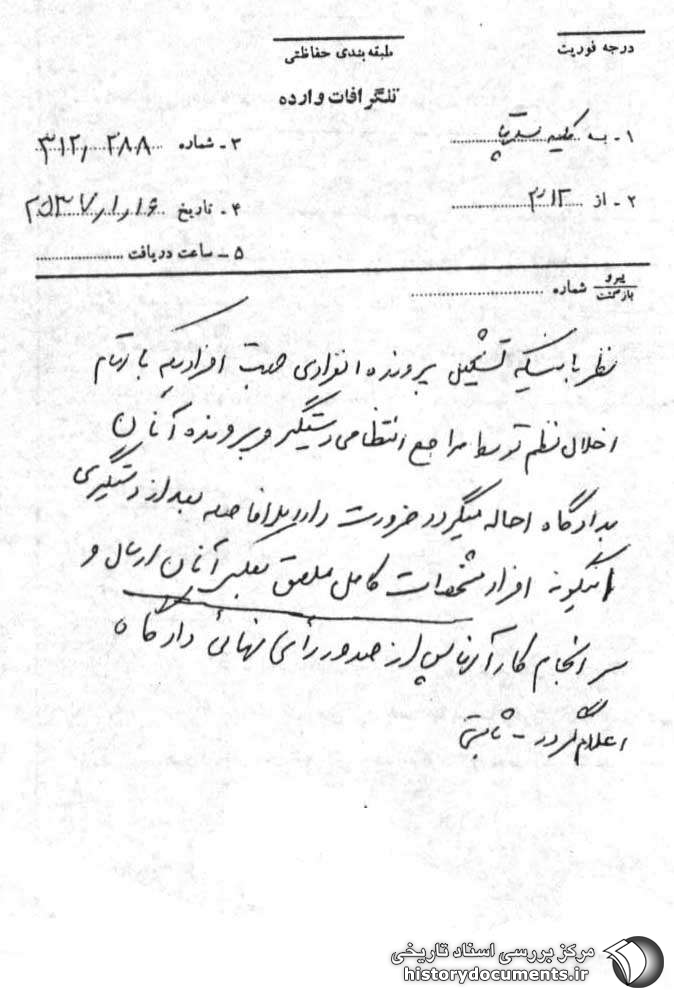 درجه فوریت
طبقه‌بندی حفاظتی
تلگرافات وارده
۱ - به کلیه
۳ - شماره ۳۱۲/۲۸۸
۲ - از ۳۱۲
۴ - تاریخ ۲۵۳۷/۱/۱۶
۵ - ساعت دریافت
پیرو
بازگشت
شماره
نظر باینکه تشکیل پرونده انفرادی جهت افرادیکه باتهام
اخلال نظم توسط مراجع انتظامی دستگیر و پرونده آنان
بدادگاه احاله میگردد ضرورت دارد بلافاصله بعد از دستگیری
اینگونه افراد مشخصات کامل ملصق بعکس آنان ارسال و
سرانجام کار آنها پس از صدور رأی نهائی دادگاه
اعلام گردد - ثابتی
مرکز بررسی اسناد تاریخی
historydocuments.ir